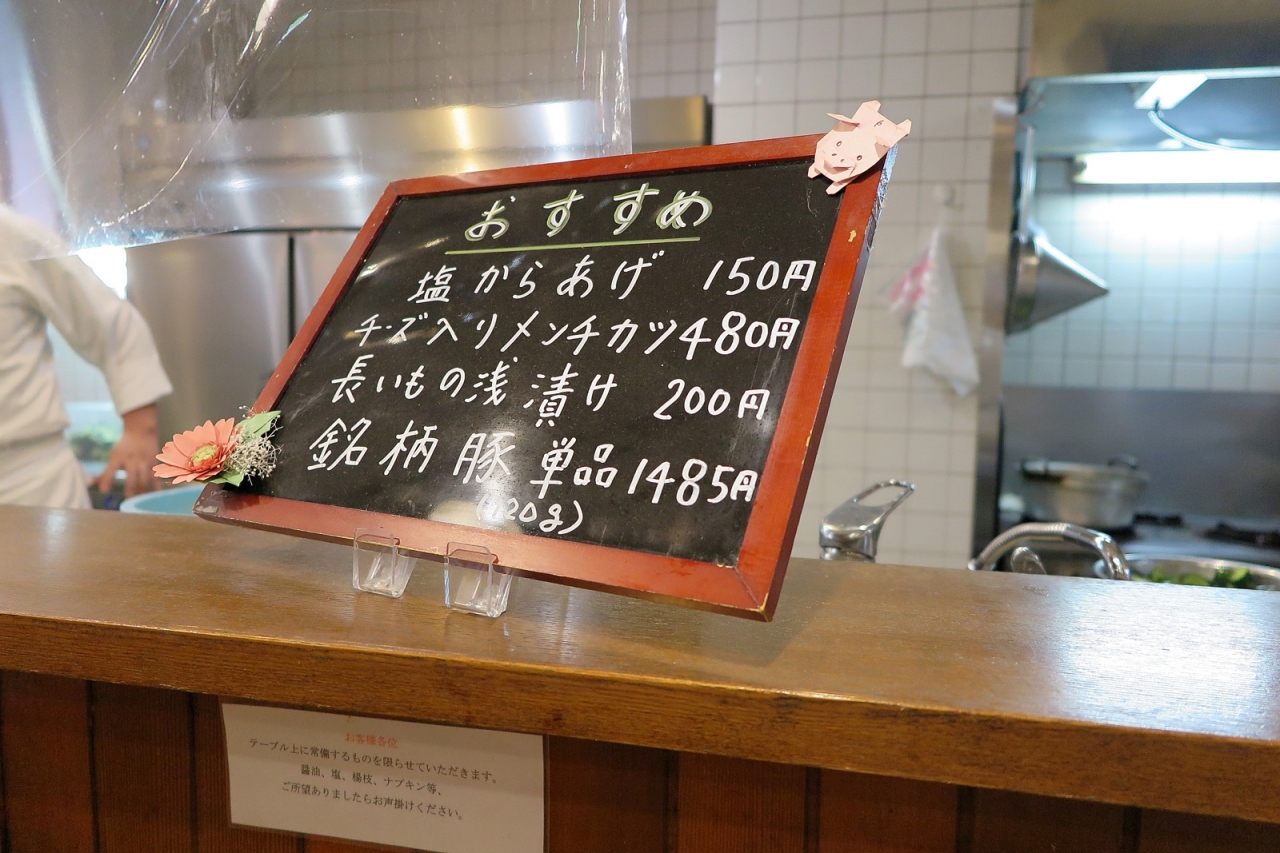 おすすめ
塩からあげ 150円
チーズ入りメンチカツ 480円
長いもの浅漬け 200円
銘柄豚 単品 1485円
(120g)
お客様各位
テーブル上に常備するものを限らせていただきます。
醤油、塩、楊枝、ナプキン等、
ご所望ありましたらお声掛けください。